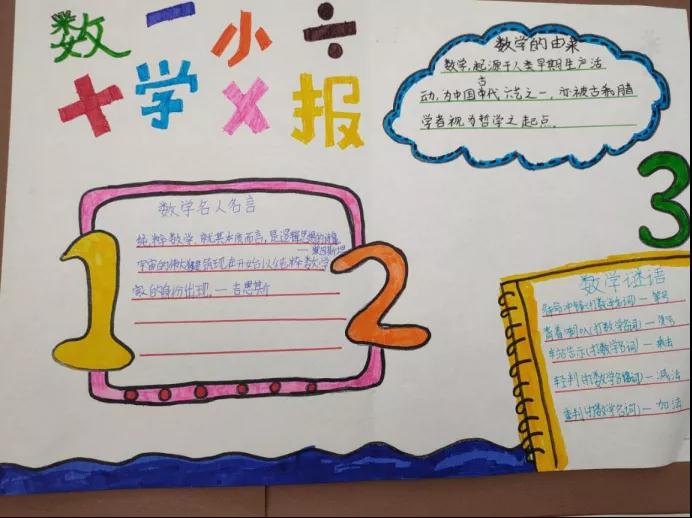 数 一 小 ÷
+ 学 × 报
数学的由来
数学,起源于人类早期生产活
动,为中国古代六艺之一,亦被古希腊
学者视为哲学之起点.
3
数学名人名言
纯粹数学,就其本质而言,是逻辑思想的诗篇
—爱因斯坦
宇宙的伟大建筑现在开始以纯粹数学
家的身份出现.—吉恩斯
1
2
数学谜语
(打数学名词)—
青春(打数学名词)—
车站告示(打数学名词)—乘法
轻判(打数学名词)—减法
重判(打数学名词)—加法